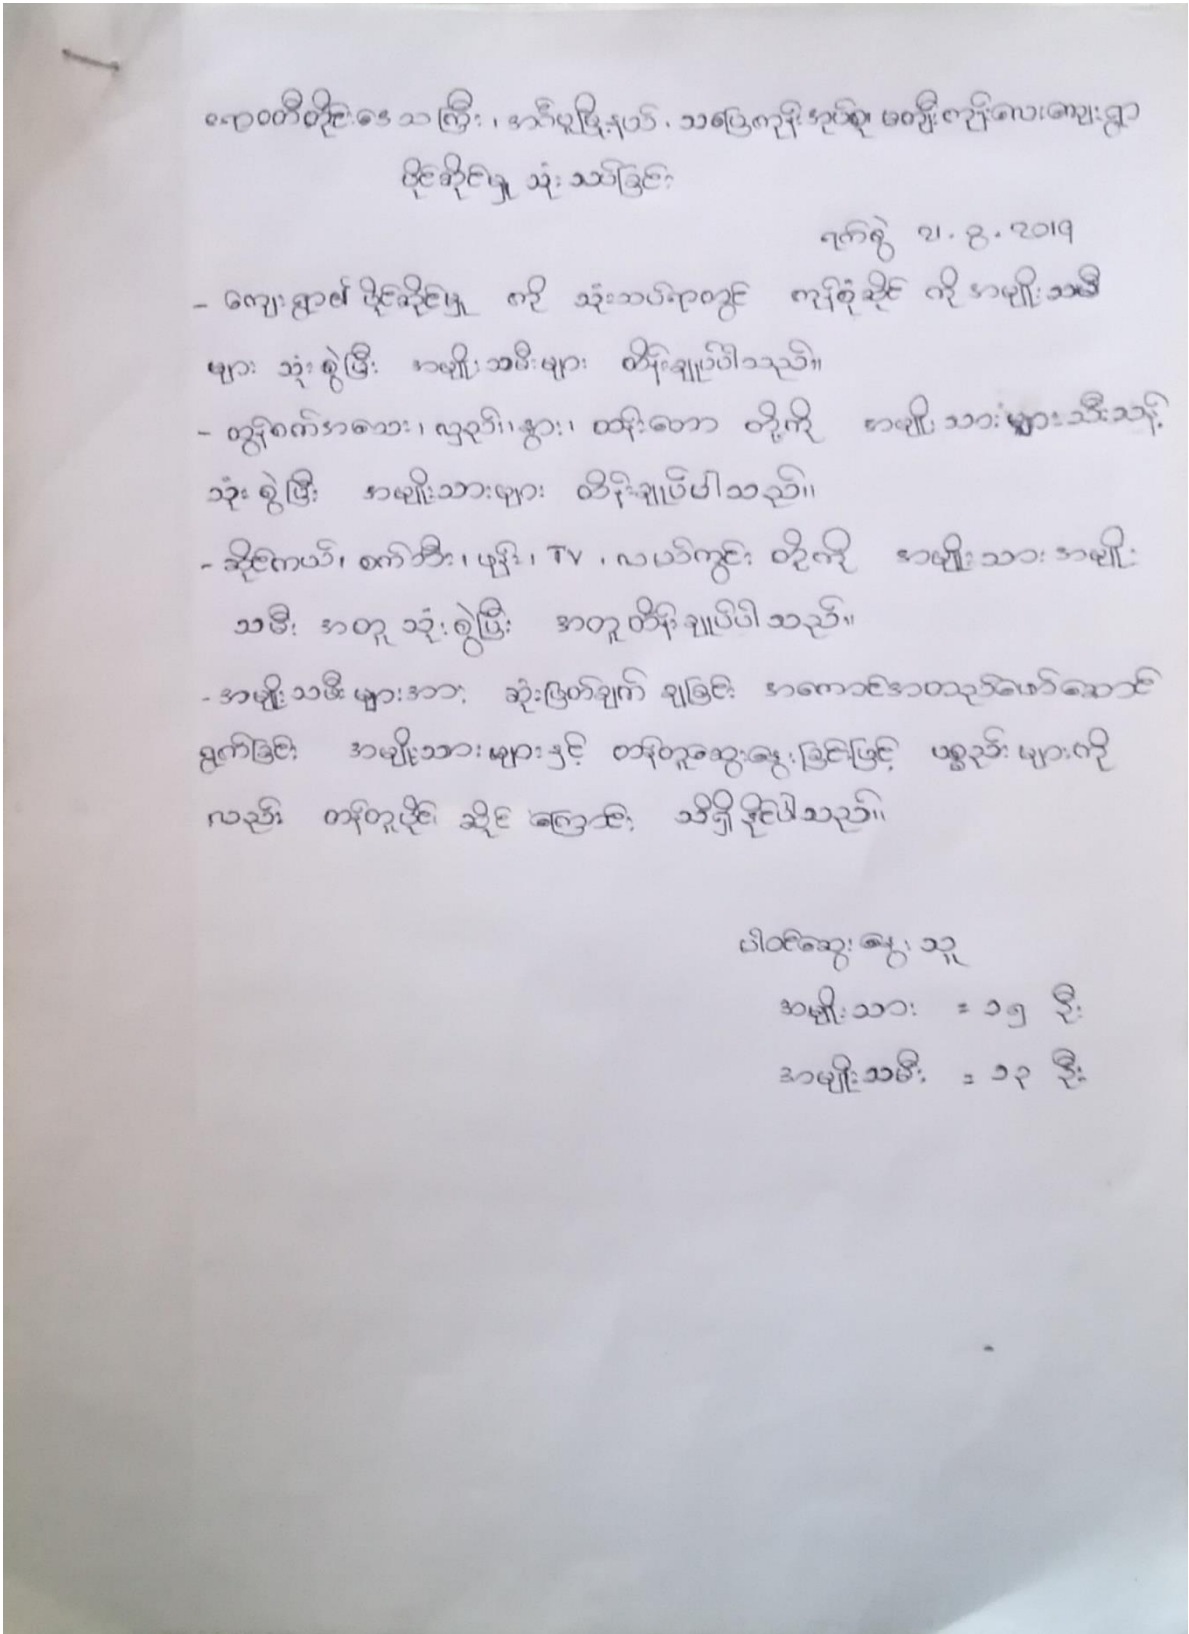 ဧရာဝတီတိုင်းဒေသကြီး၊ အင်္ဂပူမြို့နယ်၊ သပြေကုန်းအုပ်စု၊ မကျီးကျွန်းလေးကျေးရွာ
ပိုင်ဆိုင်မှု သုံးသပ်ခြင်း
ရက်စွဲ ၃၊. ၃. ၂၀၁၅
- ကျေးရွာ၏ ပိုင်ဆိုင်မှု ကို သုံးသပ်ရာတွင် ကုန်စုံဆိုင် ကို အမျိုးသမီး
များ သုံးစွဲပြီး အမျိုးသမီးများ ထိန်းချုပ်ပါသည်။
- ထွန်စက်အသေး၊ လှည်း၊ နွား၊ ထန်းတော တို့ကို အမျိုးသားများသီးသန့်
သုံးစွဲပြီး အမျိုးသားများ ထိန်းချုပ်ပါသည်။
- ဆိုင်ကယ်၊ စက်ဘီး၊ ဖုန်း၊ TV ၊ လယ်ကွင်း တို့ကို အမျိုးသား အမျိုး
သမီး အတူ သုံးစွဲပြီး အတူထိန်းချုပ်ပါသည်။
- အမျိုးသမီးများအား ဆုံးဖြတ်ချက် ချခြင်း အကောင်အထည်ဖော်ဆောင်
ရွက်ခြင်း အမျိုးသားများနှင့် တန်တူဆွေးနွေးခြင်းဖြင့် ပစ္စည်းများကို
လည်း တန်တူပိုင်ဆိုင်ကြောင်း သိရှိနိုင်ပါသည်။
ပါဝင်ဆွေးနွေးသူ
အမျိုးသား = ၁၅ ဦး
အမျိုးသမီး = ၁၃ ဦး